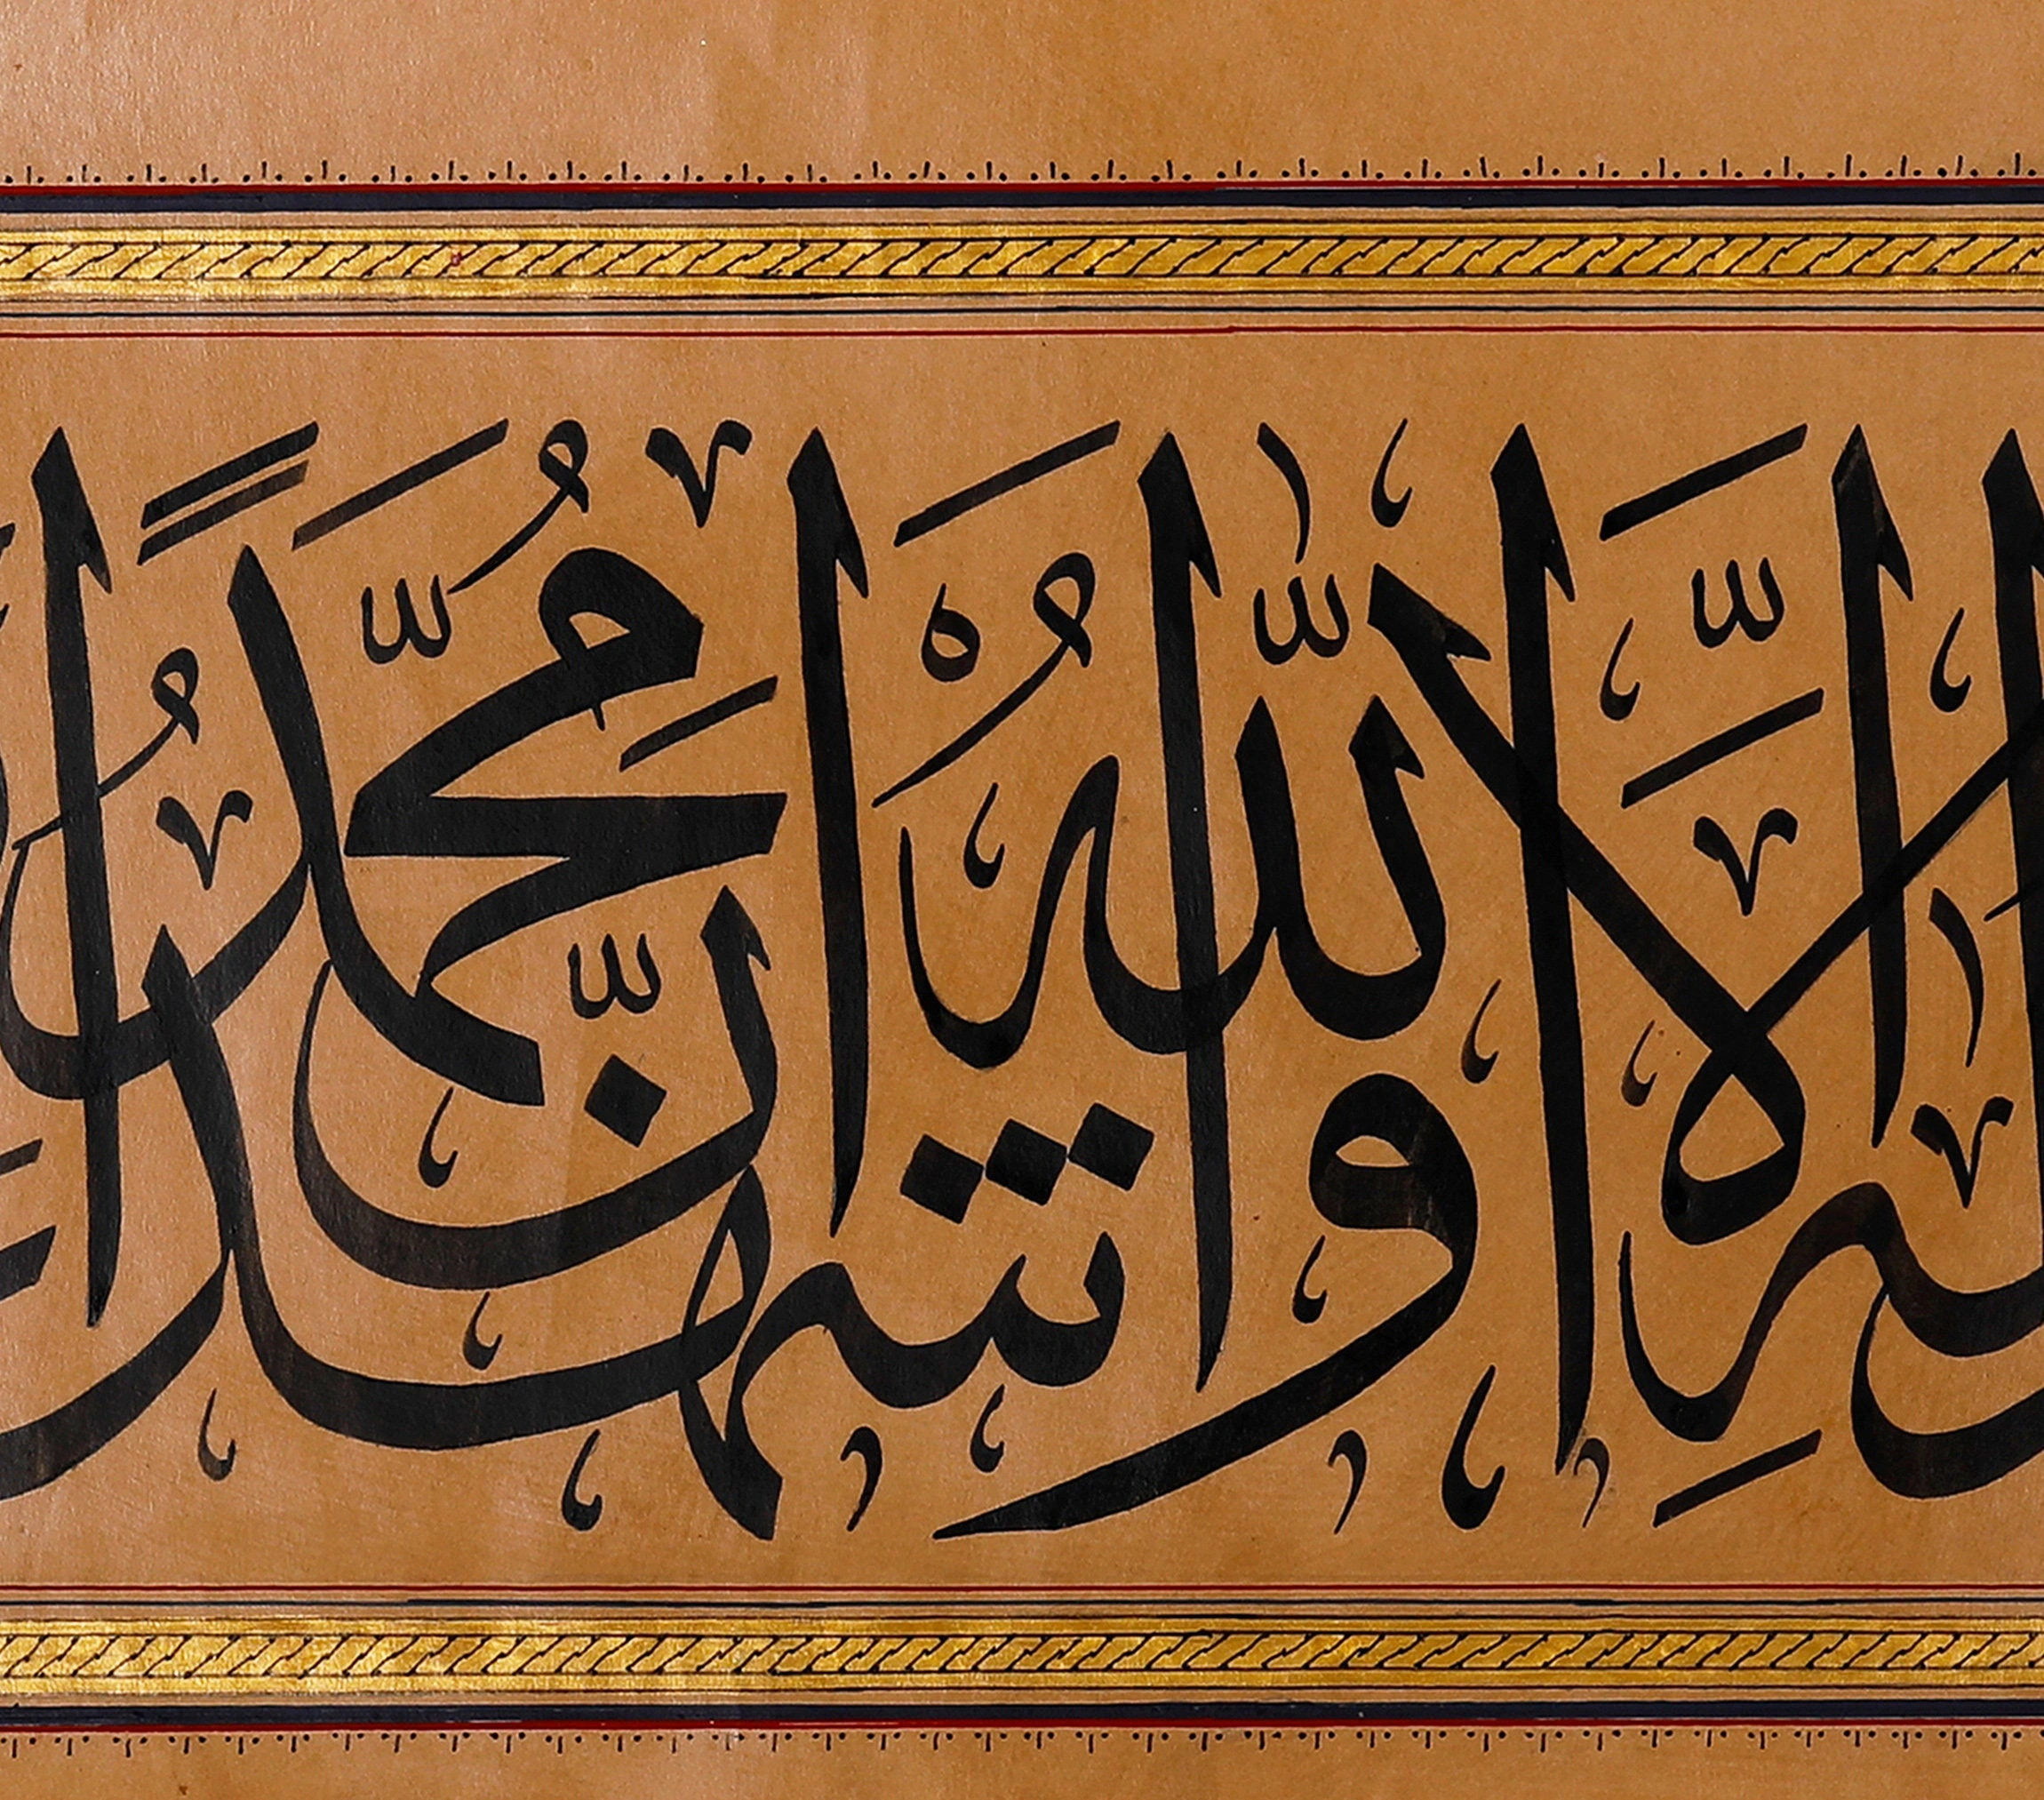 اِلٰهَ اِلَّا اللّٰهُ وَاَشْهَدُ اَنَّ مُحَمَّدًا